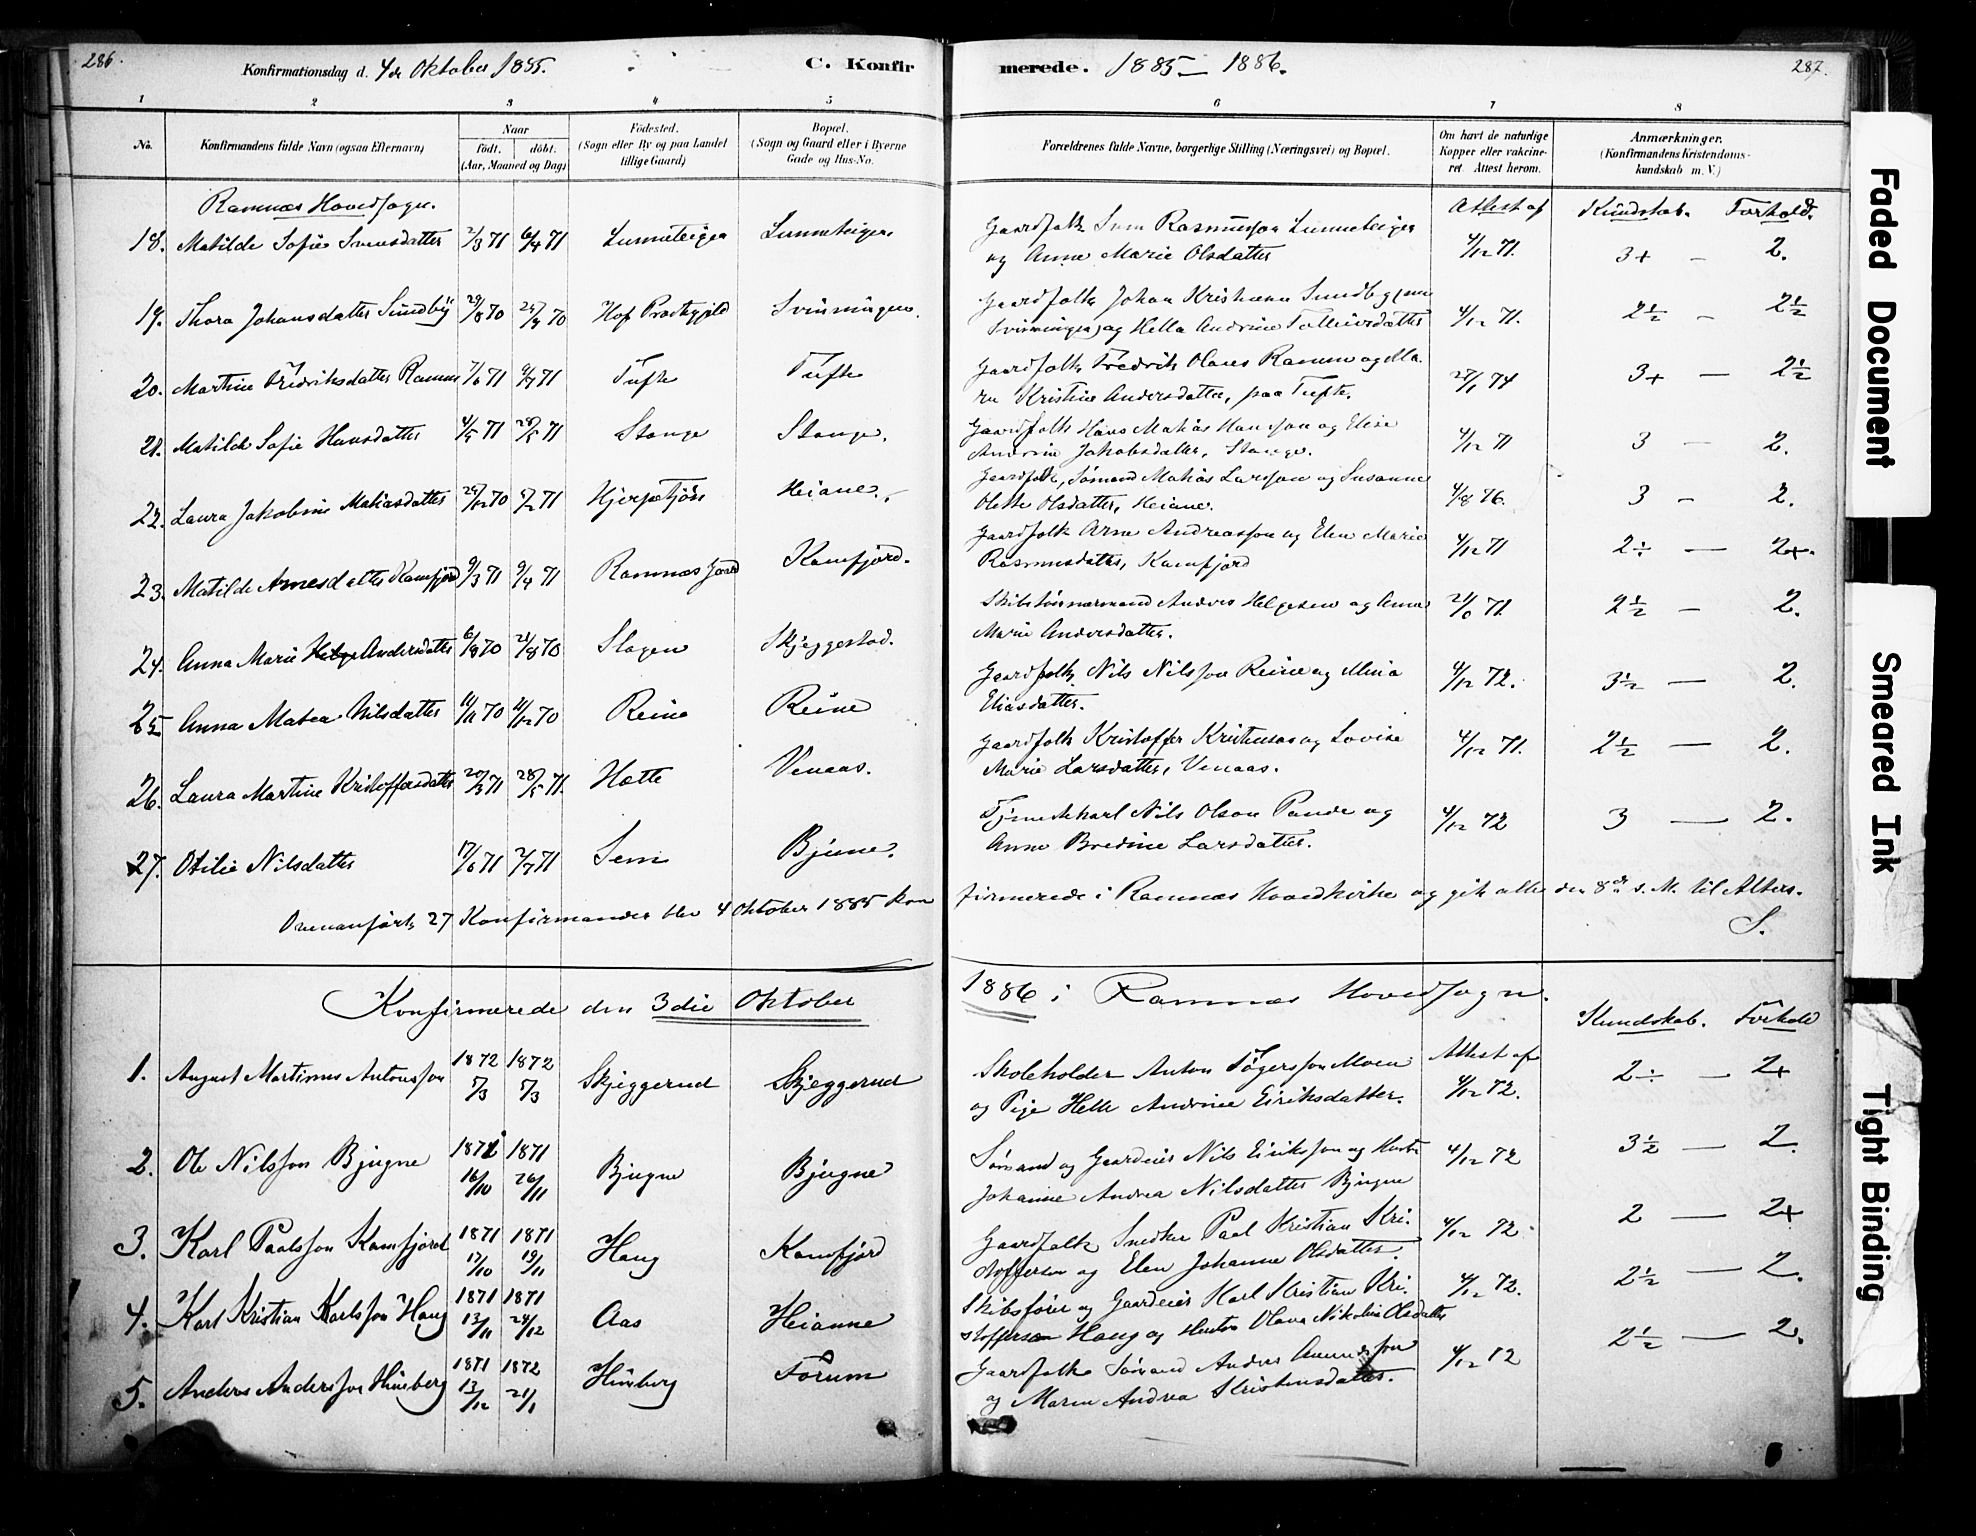 286.
Konfirmationsdag d. 4de Oktober 1885.
C. Konfir
merede. 1885 — 1886.
287.
1 2 3 4 5 6 7 8
No.
Konfirmandens fulde Navn (ogsaa Efternavn)
Naar
født. døbt.
(Aar, Maaned og Dag)
Fødested.
(Sogn eller By og paa Landet
tillige Gaard)
Bopæl.
(Sogn og Gaard eller i Byerne
Gade og Hus-No.
Forældrenes fulde Navne, borgerlige Stilling (Næringsvei) og Bopæl.
Om havt de naturlige
Kopper eller vakcine-
ret. Attest herom.
Anmærkninger.
(Konfirmandens Kristendoms-
kundskab m. V.)
Ramnæs Hovedsogn.
Attest af Kundskab. Forhold.
18. Matilde Sofie Svensdatter 2/3 71 6/4 71
Gaardfolk Sven Rasmussen
og Anne Marie Olsdatter 4/12 71. 3+ – 2.
19. Thora Johansdatter Sundby 29/8 70 70 Hof Præstegjeld Svinningen.
Gaardfolk Johan Kristian
Svinningen og Helle Andrine 4/12 71. 2½ – 2½
20. Martine Fredriksdatter Ramnæs 7/6 71 9/7 71 Tufte Tufte
Gaardfolk Fredrik Olaus Ramnæs og Ma
ren Kristine Andersdatter, paa Tufte. 27/1 74 3+ — 2½
21. Matilde Sofie Hansdatter 4/5 71 28/5 71 Stange Stange.
Gaardfolk Hans Matias Hansson og Elise
Andrine Jakobsdatter, Stange. 4/12 71 3 — 2.
22. Laura Jakobine Matiasdatter 25/12 70 5/2 71 Heiane.
Gaardfolk, Sømand Matias Larsson og Susanne
Olette Olsdatter, Heiane. 4/8 76. 3 – 2.
23. Matilde Arnesdatter Kamfjord 9/3 71 9/4 71 Ramnæs Gaard Kamfjord.
Gaardfolk Arne Andreasson og Elen Marie
Rasmusdatter, Kamfjord 4/12 71 2÷ — 2+.
24. Anna Marie Andersdatter 6/8 70 21/8 70 Slagen Skjeggestad.
Anders Helgesen og Anne
Marie Andersdatter. 71. 2½ – 2.
25 Anna Matea Nilsdatter 70 70 Reine Reine
Gaardfolk Nils Nilsson Reine og Mina
Eliasdatter. 4/12 72. 3½ — 2.
26. Laura Martine Kristoffersdatter 20/3 71 28/5 71. Hotte Venaas.
Gaardfolk Kristoffer Kristensen og Lovise
Marie Larsdatter, Venaas. 4/12 71. 2½ — 2.
27. Otilie Nilsdatter 17/6 71 2/7 71 Sem Bjune.
Tjenestekarl Nils Olson Pande og
Anne Bredine Larsdatter. 4/12 72 3 — 2.
Ovenanførte 27 Konfirmander blev 4 Oktober 1885 kon
firmerede i Ramnæs Hovedkirke og gik alle den 8de s. M. til Alters.
S.
Konfirmerede den 3die Oktober
1886 i Ramnæs Hovedsogn.
Kundskab. Forhold
1. August Martinus Antonsson 1872 7/3 1872 7/3 Skjeggerud Skjeggerud
Skoleholder Anton Moen
og Pige Helle Andrine Eiriksdatter. Attest af 4/12 72. 2÷ – 2+
2. Ole Nilsson Bjugne 1871 16/10 1871 26/11 Bjugne Bjugne
Sømand og Gaardeier Nils Eiriksson og Hustr
Johanne Andrea Nilsdatter Bjugne 4/12 72 3½ — 2.
3. Karl Paalsson Kamfjord 1871 17/10 1871 19/11 Haug Kamfjord
Gaardfolk Snedker Paal Kristian Kri-
stofferson og Elen Johanne Olsdatter. 4/12 72. 2 — 2+
4. Karl Kristian Karlsson Haug 1871 13/11 1871 24/12 Aas Heianne
Skibsfører og Gaardeier Karl Kristian Kri-
stofferson Haug og Hustru Olava Nikoline Olsdatter 4/12 72. 2½ — 2.
5. Anders Andersson Himberg 1871 13/12 1872 21/1 Himberg Forum
Gaardfolk Sømand Anders
og Maren Andrea Kristensdatter. 4/12 2½ — 2.
Faded Document
Smeared Ink
Tight Binding